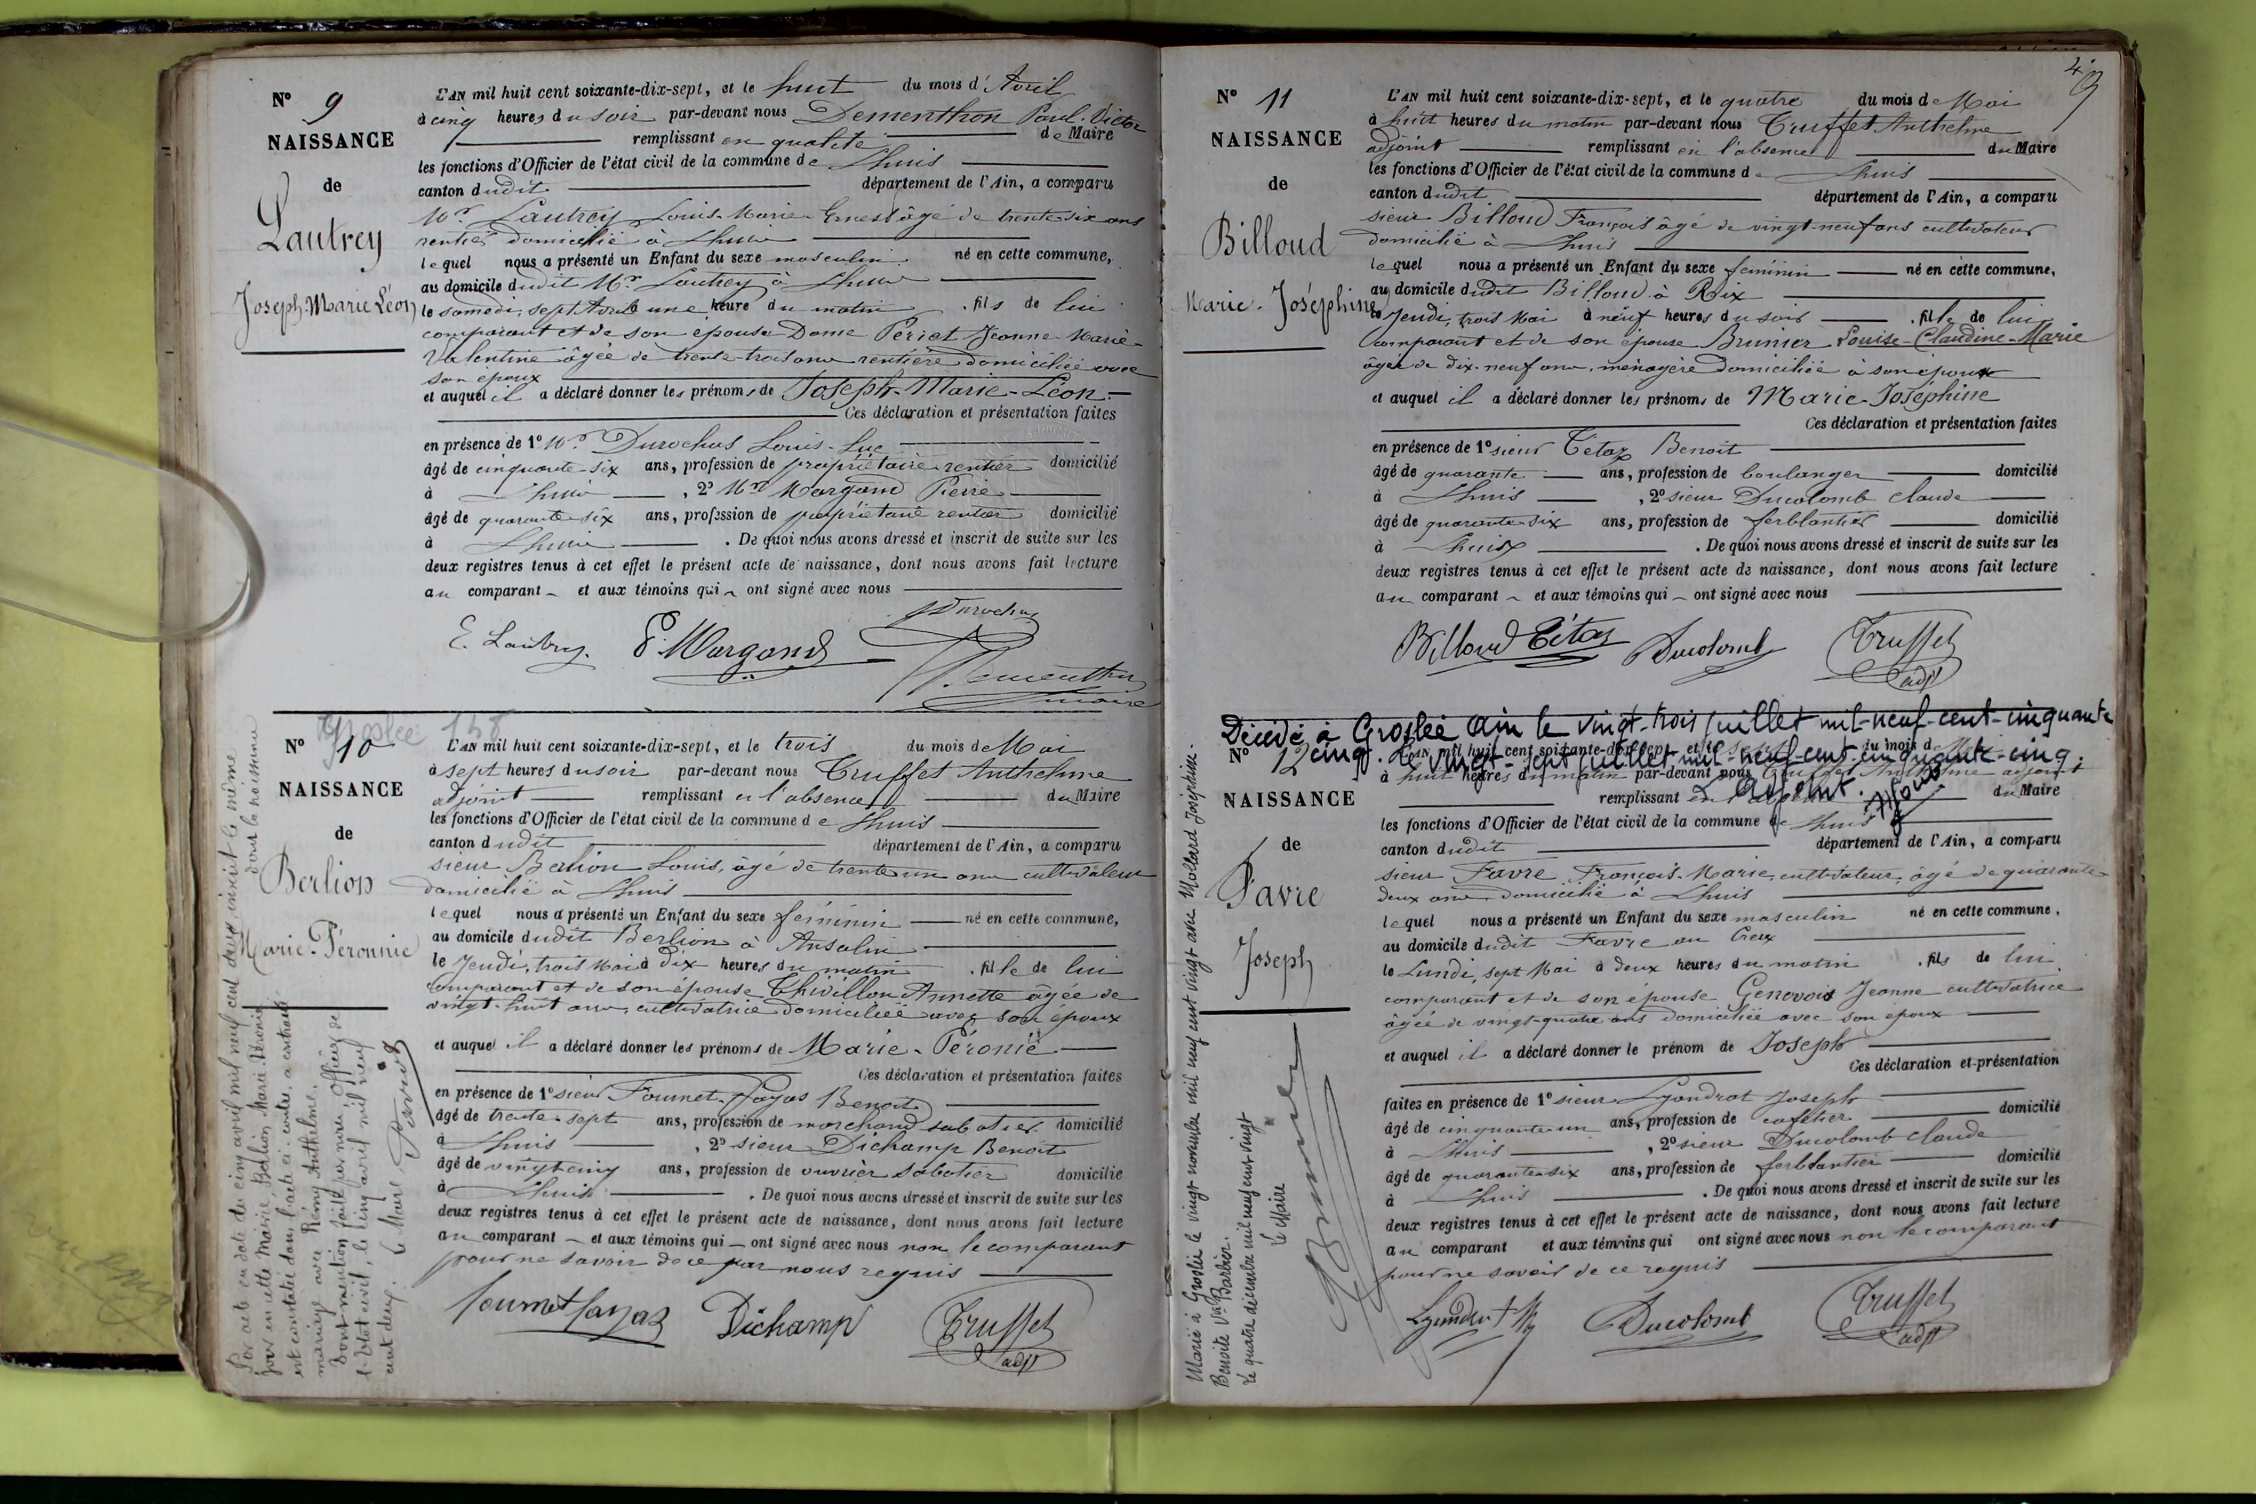 N° 9
NAISSANCE
de
Lautrey
Joseph-Marie Léon
L'AN mil huit cent soixante-dix-sept, et le huit du mois d'Avril
à cinq heures du soir par-devant nous Dementhon Paul-Victor
remplissant en qualité de Maire
les fonctions d'Officier de l'état civil de la commune de Lhuis
canton dudit département de l'Ain, a comparu
Mr Lautrey Louis-Marie-Ernest âgé de trente six ans
rentier domicilié à Lhuis
lequel nous a présenté un Enfant du sexe masculin né en cette commune,
au domicile dudit Mr Lautrey à Lhuis
le samedi, sept Avril à une heure du matin . fils de lui
comparant et de son épouse Dame Perret Jeanne-Marie-
Valentine âgée de trente-trois ans rentière domiciliée avec
son époux
et auquel il a déclaré donner les prénoms de Joseph-Marie-Léon-
Ces déclaration et présentation faites
en présence de 1° Mr Durochas Louis-Luc
âgé de cinquante-six ans, profession de propriétaire rentier domicilié
à Lhuis , 2° Mr Margand Pierre
âgé de quarante-six ans, profession de propriétaire rentier domicilié
à Lhuis . De quoi nous avons dressé et inscrit de suite sur les
deux registres tenus à cet effet le présent acte de naissance, dont nous avons fait lecture
au comparant et aux témoins qui ont signé avec nous
E. Lautrey. P. Margand
Dementhon
maire
N° 10
NAISSANCE
de
Berlion
Marie-Péronnie
L'AN mil huit cent soixante-dix-sept, et le trois du mois de Mai
à sept heures du soir par-devant nous Truffet Anthelme
adjoint remplissant en l'absence du Maire
les fonctions d'Officier de l'état civil de la commune de Lhuis
canton dudit département de l'Ain, a comparu
sieur Berlion Louis, âgé de trente un ans cultivateur
domicilié à Lhuis
lequel nous a présenté un Enfant du sexe féminin né en cette commune,
au domicile dudit Berlion à Ansolin
le Jeudi, trois Mai à dix heures du matin . fille de lui
comparant et de son épouse Thivillon Annette âgée de
vingt-huit ans, cultivatrice domiciliée avec son époux
et auquel il a déclaré donner les prénoms de Marie-Péronie
Ces déclaration et présentation faites
en présence de 1° sieur Fournet-Fayas Benoit
âgé de trente-sept ans, profession de marchand sabotier domicilié
à Lhuis , 2° sieur Dichamp Benoit
âgé de vingt-cinq ans, profession de ouvrier sabotier domicilié
à Lhuis . De quoi nous avons dressé et inscrit de suite sur les
deux registres tenus à cet effet le présent acte de naissance, dont nous avons fait lecture
au comparant et aux témoins qui ont signé avec nous non le comparant
pour ne savoir de ce par nous requis
Dichamp Truffet
adjt
Par acte en date du cinq avril mil neuf cent deux, inscrit le même
jour en cette Mairie, Berlion Marie Péronie
est constatée dans l'acte ci-contre, a contracté
mariage avec Rémy Anthelme.
Dont mention faite par nous, Officier de
l'état civil, le cinq avril mil neuf
cent deux. Le Maire
N° 11
NAISSANCE
de
Billoud
Marie-Joséphine
L'AN mil huit cent soixante-dix-sept, et le quatre du mois de Mai
à huit heures du matin par-devant nous Truffet Anthelme
adjoint remplissant en l'absence du Maire
les fonctions d'Officier de l'état civil de la commune de Lhuis
canton dudit département de l'Ain, a comparu
sieur Billoud François âgé de vingt-neuf ans cultivateur
domicilié à Lhuis
lequel nous a présenté un Enfant du sexe féminin né en cette commune,
au domicile dudit Billoud à Rix
le Jeudi, trois Mai à neuf heures du soir . fille de lui
comparant et de son épouse Brunier Louise-Claudine-Marie
âgée de dix-neuf ans, ménagère domiciliée à son époux
et auquel il a déclaré donner les prénoms de Marie-Joséphine
Ces déclaration et présentation faites
en présence de 1° sieur Tétaz Benoit
âgé de quarante ans, profession de boulanger domicilié
à Lhuis , 2° sieur Ducolomb Claude
âgé de quarante-six ans, profession de ferblantier domicilié
à Lhuis . De quoi nous avons dressé et inscrit de suite sur les
deux registres tenus à cet effet le présent acte de naissance, dont nous avons fait lecture
au comparant et aux témoins qui ont signé avec nous
Billoud Tétaz Ducolomb Truffet
adjt
Décédé à Groslée Ain le vingt-trois juillet mil-neuf-cent-cinquante
cinq. Le vingt-sept juillet mil-neuf-cent-cinquante-cinq.
L'adjoint.
N° 12
NAISSANCE
de
Favre
Joseph
L'AN mil huit cent soixante-dix-sept, et le du mois de Mai
à huit heures du matin par-devant nous Truffet Anthelme adjoint
remplissant en l'absence du Maire
les fonctions d'Officier de l'état civil de la commune de Lhuis
canton dudit département de l'Ain, a comparu
sieur Favre François-Marie, cultivateur, âgé de quarante-
deux ans domicilié à Lhuis
lequel nous a présenté un Enfant du sexe masculin né en cette commune,
au domicile dudit Favre au Creux
le Lundi, sept Mai à deux heures du matin . fils de lui
comparant et de son épouse Genevois Jeanne cultivatrice
âgée de vingt-quatre ans domiciliée avec son époux
et auquel il a déclaré donner le prénom de Joseph
Ces déclaration et présentation
faites en présence de 1° sieur Lyondrat Joseph
âgé de cinquante-un ans, profession de cafetier domicilié
à Lhuis , 2° sieur Ducolomb Claude
âgé de quarante-six ans, profession de ferblantier domicilié
à Lhuis . De quoi nous avons dressé et inscrit de suite sur les
deux registres tenus à cet effet le présent acte de naissance, dont nous avons fait lecture
au comparant et aux témoins qui ont signé avec nous non le comparant
pour ne savoir de ce requis
Ducolomb Truffet
adjt
Marié à Groslée le vingt novembre mil neuf cent vingt avec Mollard Joséphine.
Benoite Vve Barbier.
Le quatre décembre mil neuf cent vingt
Le Maire